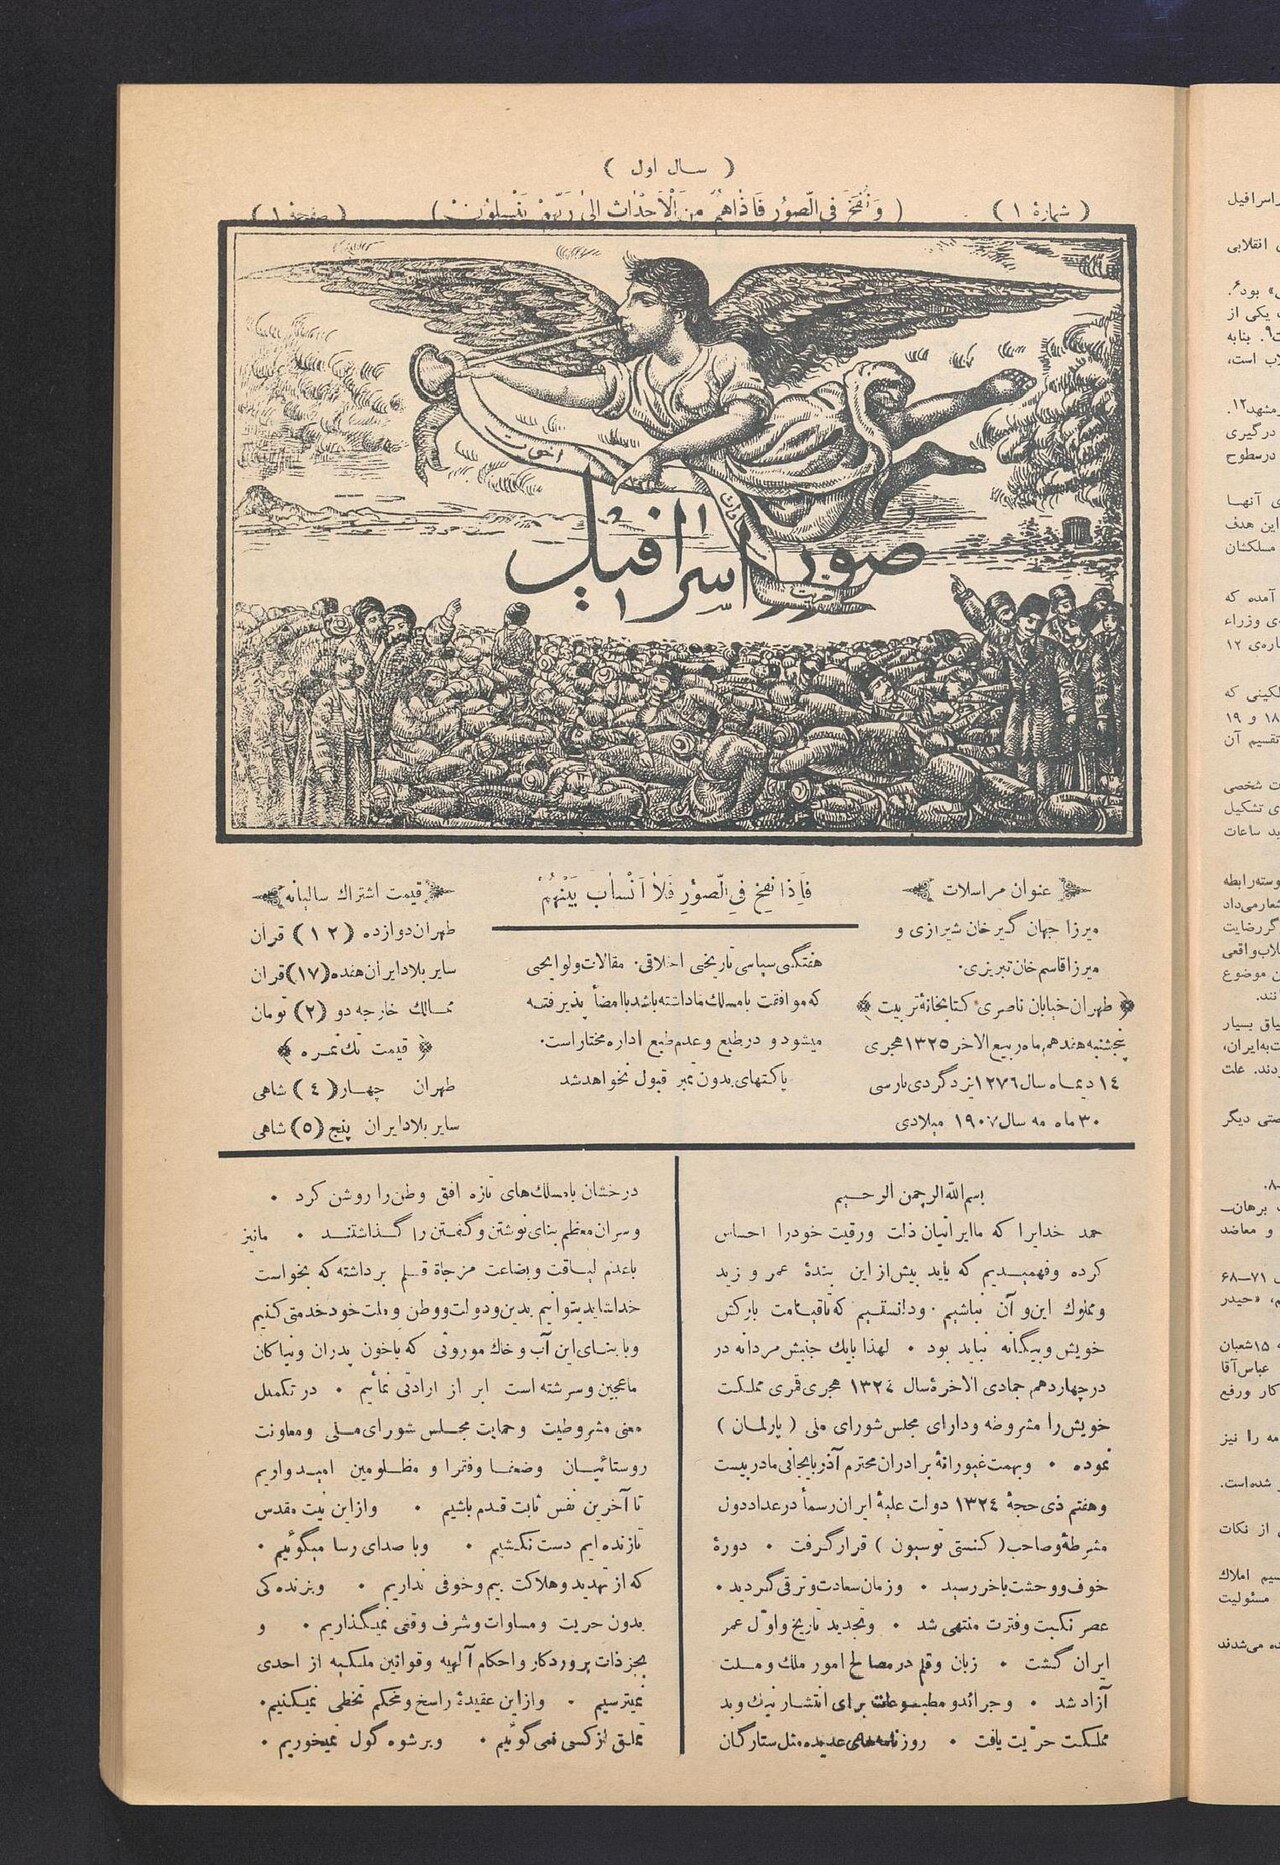 ( سال اول )
( شمارهٔ ۱ )
( وَنُفِخَ فِی الصّورِ فَاِذاهُم مِنَ الْاَجْداثِ اِلیٰ رَبِّهِمْ یَنْسِلُونَ )
( صفحهٔ ۱ )
اخوت
مساوات
حریت
صور اسرافیل
عنوان مراسلات
میرزا جهان گیر خان شیرازی و
میرزا قاسم خان تبریزی.
﴿ طهران خیابان ناصری کتابخانهٔ تربیت ﴾
پنجشنبه هفدهم ماه ربیع الاخر ۱۳۲۵ هجری
۱۴ دیماه سال ۱۲۷۶ یزدگردی پارسی
۳۰ ماه مه سال ۱۹۰۷ میلادی
فَاِذا نُفِخَ فِی الصّوُرِ فَلاٰ اَنْسابَ بَیْنَهُمْ
هفتگی سیاسی تاریخی اخلاقی. مقالات و لوایحی
که موافقت با مسلک ما داشته باشد با امضأ پذیرفته
میشود و در طبع و عدم طبع اداره مختار است.
پاکتهای بدون تمبر قبول نخواهد شد
قیمت اشتراک سالیانه
طهران دوازده (۱۲) قران
سایر بلاد ایران هفده (۱۷) قران
ممالک خارجه دو (۲) تومان
﴿ قیمت تک نمره ﴾
طهران چهار (۴) شاهی
سایر بلاد ایران پنج (۵) شاهی
بسم الله الرحمن الرحیم
حمد خدایرا که ما ایرانیان ذلت و رقیت خود را احساس
کرده و فهمیدیم که باید بیش از این بندهٔ عمر و زید
و مملوک این و آن نباشیم ۰ و دانستیم که تا قیامت بارکش
خویش و بیگانه نباید بود ۰ لهذا با یک جنبش مردانه در
در چهاردهم جمادی الاخرهٔ سال ۱۳۲۴ هجری قمری مملکت
خویش را مشروطه و دارای مجلس شورای ملی ( پارلمان )
نموده ۰ و بهمت غیورانهٔ برادران محترم آذربایجانی ما در بیست
و هفتم ذی حجهٔ ۱۳۲۴ دولت علیهٔ ایران رسماً در عداد دول
مشرطهٔ و صاحب ( کنستی توسیون ) قرار گرفت ۰ دورهٔ
خوف و وحشت باخر رسید ۰ و زمان سعادت و ترقی گردید ۰
عصر نکبت و فترت منتهی شد ۰ و تجدید تاریخ و اوّل عمر
ایران گشت ۰ زبان و قلم در مصالح امور ملک و ملت
آزاد شد ۰ و جرائد و مطبوعات برای انتشار نیک و بد
مملکت حرّیت یافت ۰ روزنامه‌های عدیده مثل ستارگان
درخشان با مسلک‌های تازه افق وطن را روشن کرد ۰
و سران معظم بنای نوشتن و گفتن را گذاشتند ۰ ما نیز
با عدم لیاقت و بضاعت مزجاة قلم برداشته که بخواست
خدا شاید بتوانیم بدین و دولت و وطن و ملت خود خدمتی کنیم
و با بنای این آب و خاک موروثی که با خون پدران و نیاکان
ما عجین و سرشته است ابراز ارادتی نمائیم ۰ در تکمیل
معنی مشروطیت و حمایت مجلس شورای ملی و معاونت
روستائیان و ضعفا و فقرا و مظلومین امیدواریم
تا آخرین نفس ثابت قدم باشیم ۰ و از این نیت مقدس
تا زنده ایم دست نکشیم ۰ و با صدای رسا میگوئیم ۰
که از تهدید و هلاکت بیم و خوفی نداریم ۰ و بزندگی
بدون حریت و مساوات و شرف وقعی نمیگذاریم ۰ و
بجز ذات پروردگار و احکام آلهیه و قوانین ملکیه از احدی
نمیترسیم ۰ و از این عقیدهٔ راسخ و محکم تخطی نمیکنیم۰
تملق از کسی نمی گوئیم ۰ و بر شوه گول نمیخوریم ۰